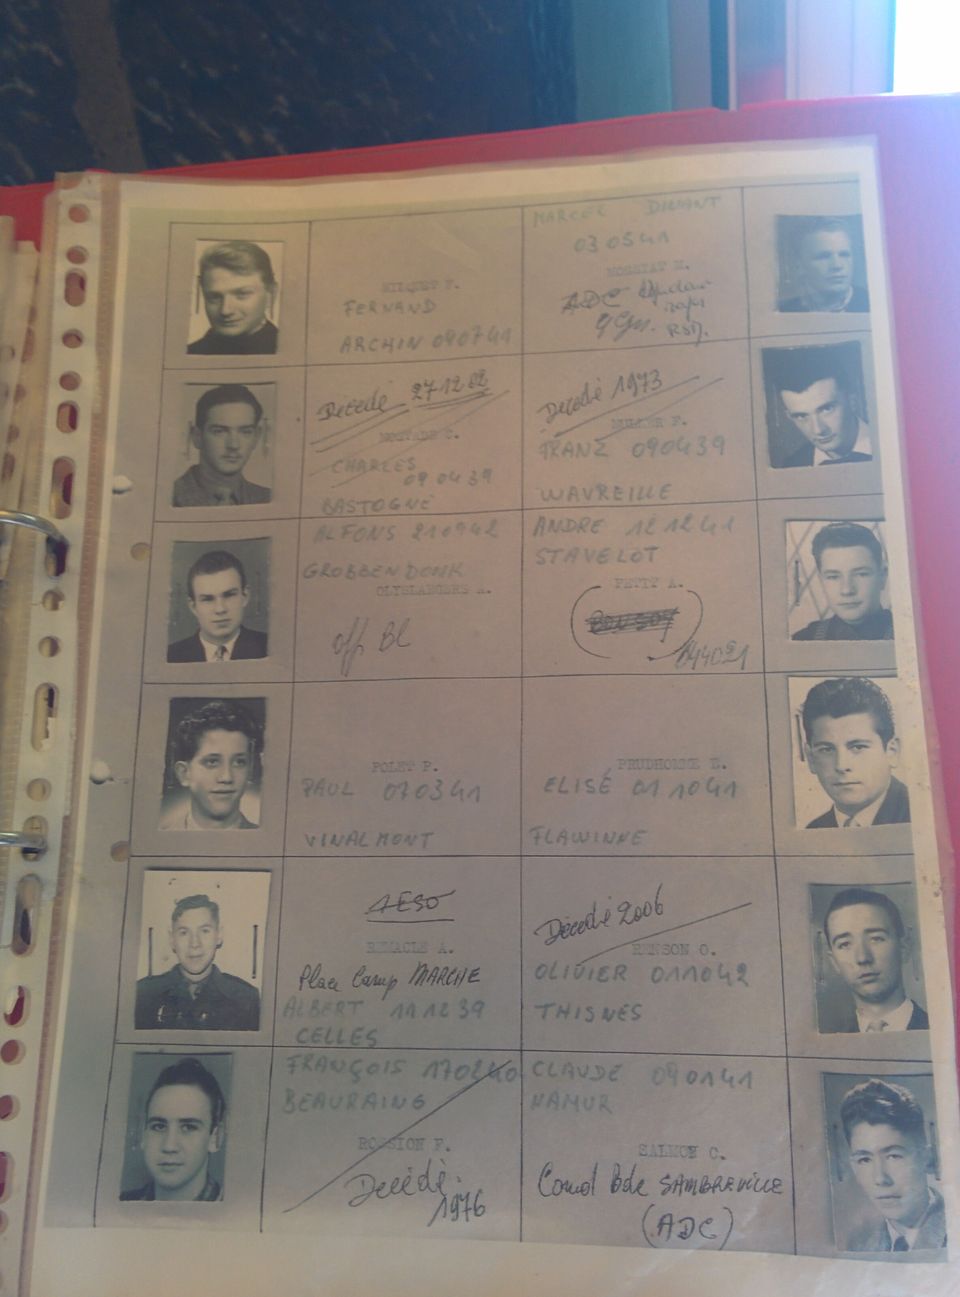 FERNAND
ARCHIN 090741
MARCEL DINANT
030541
ADC
Décédé 27 12 82
CHARLES
09 04 39
BASTOGNE
Décédé 1973
MULLER F.
FRANZ 090439
WAVREILLE
ALFONS 210942
GROBBENDONK
OLYSLAEGERS A.
off BL
ANDRE 121241
STAVELOT
PETIT A.
POLET P.
PAUL 070341
VINALMONT
PRUDHOMME E.
ELISÉ 011041
FLAWINNE
REMACLE A.
Place Camp MARCHE
ALBERT 111239
CELLES
Décédé 2006
RENSON O.
OLIVIER 011042
THISNES
FRANÇOIS 170240
BEAURAING
ROSSION F.
Décédé
1976
CLAUDE 090141
NAMUR
SALMON C.
Comd Bde SAMBREVILLE
(ADC)